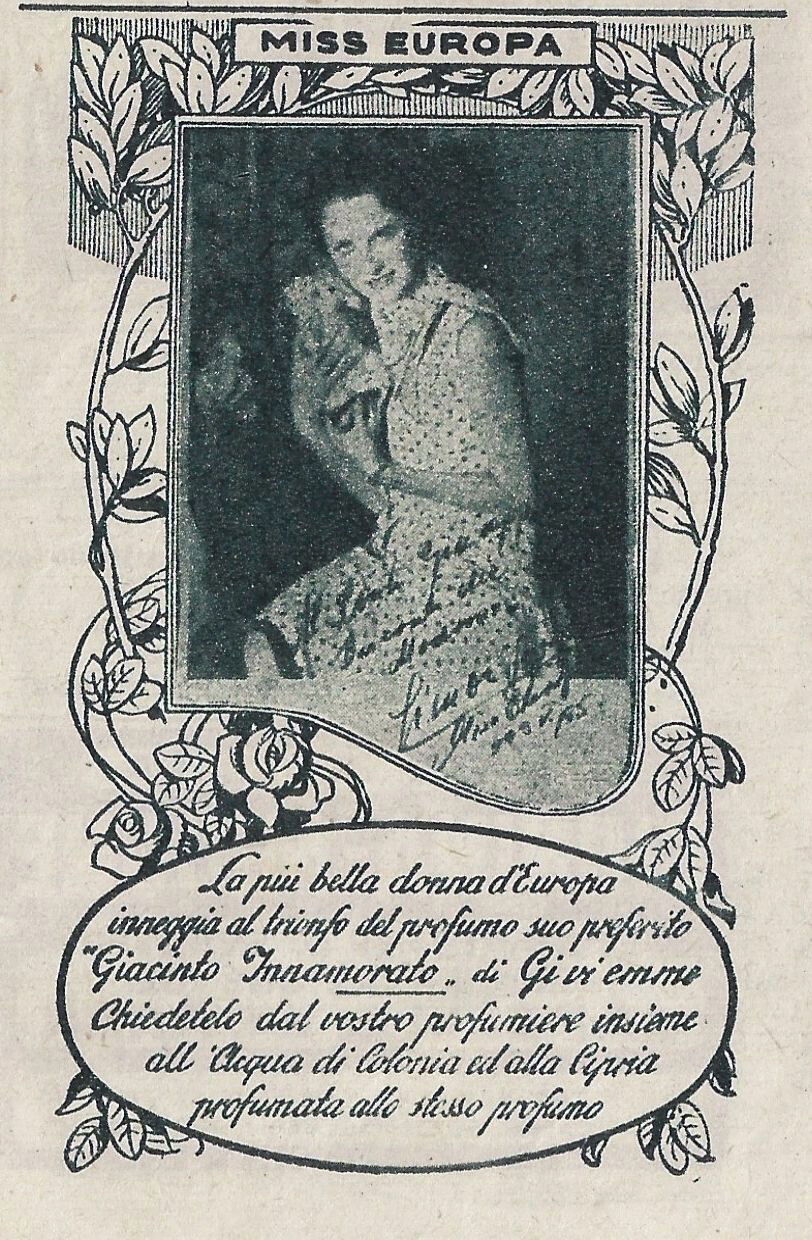 MISS EUROPA
Miss
La più bella donna d'Europa
inneggia al trionfo del profumo suo preferito
"Giacinto Innamorato„ di Gi vi emme
Chiedetelo dal vostro profumiere insieme
all'Acqua di Colonia ed alla Cipria
profumata allo stesso profumo